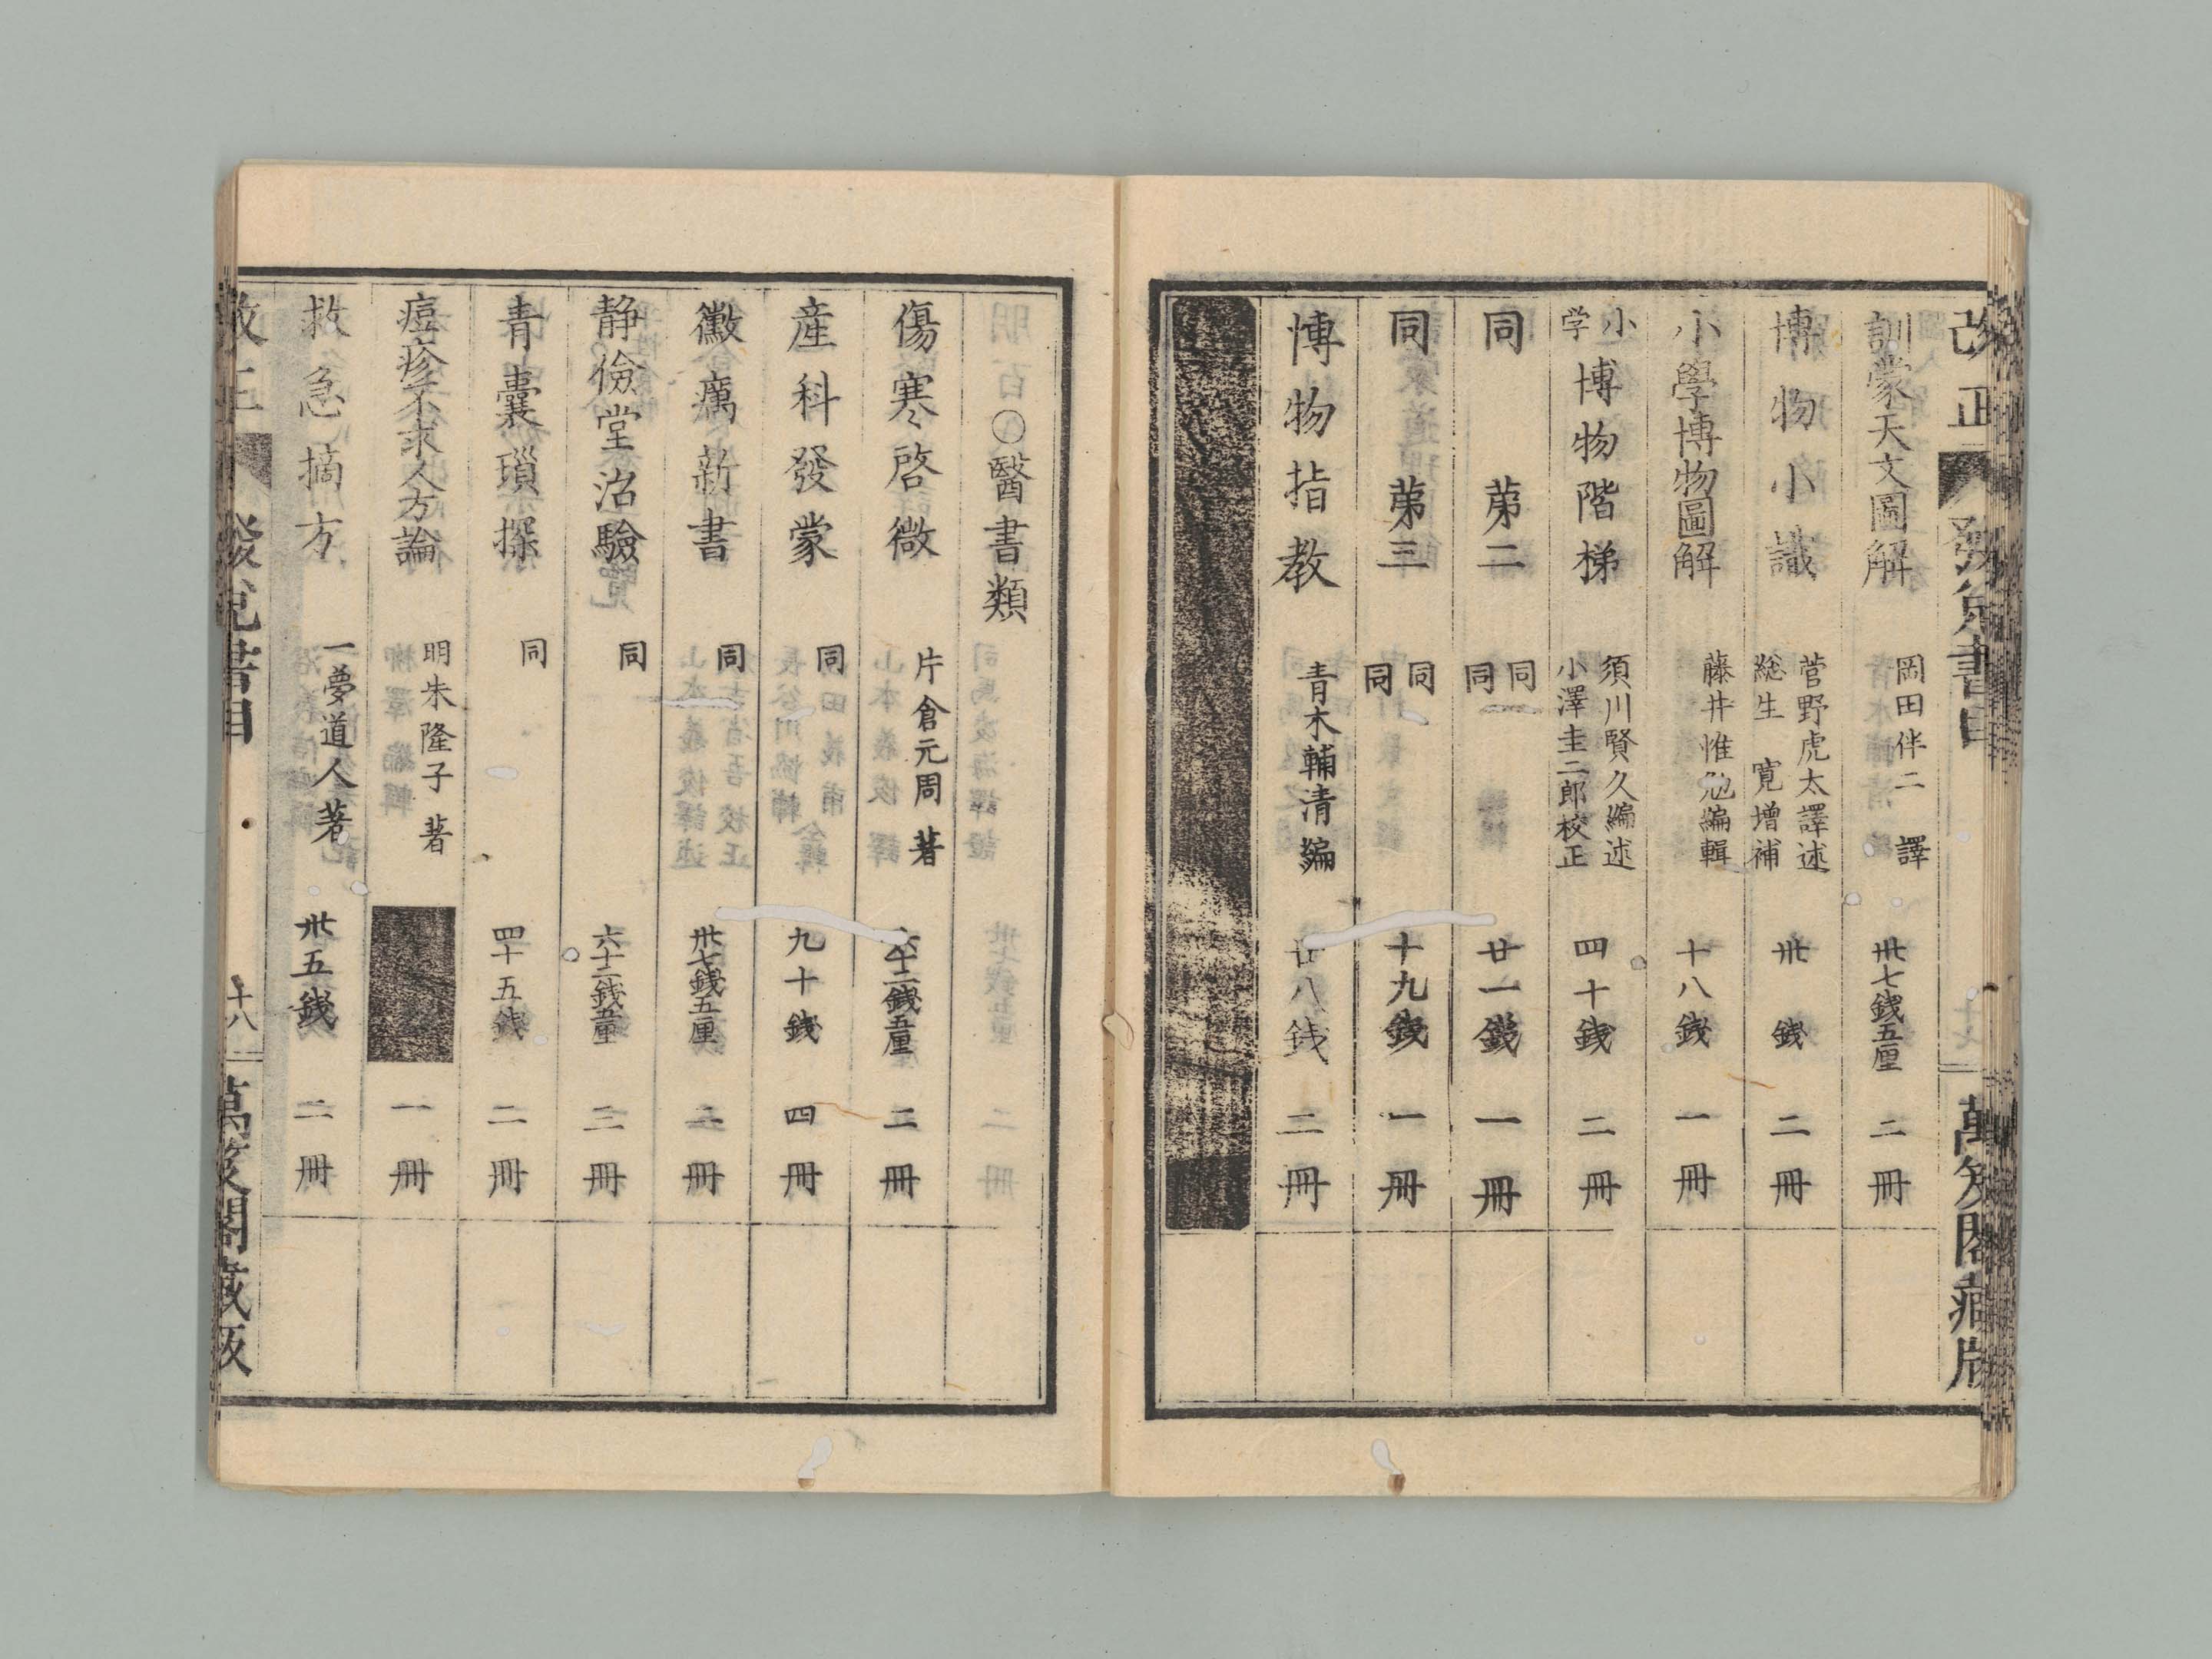 改正
發兌書目
萬笈閣藏版
訓蒙天文圖解 岡田伴二 譯 卅七銭五厘 二冊
博物小識 菅野虎太譯述 総生 寛増補 卅銭 二冊
小學博物圖解 藤井惟勉編輯 十八銭 一冊
小学 博物階梯 須川賢久編述 小澤圭二郎校正 四十銭 二冊
同 苐二 同 同 廿一銭 一冊
同 苐三 同 同 十九銭 一冊
博物指教 青木輔清編 廿八銭 二冊
○醫書類
傷寒啓微 片倉元周著 二冊
産科發蒙 同 九十銭 四冊
黴癘新書 同 卅七銭五厘 二冊
静儉堂治驗 同 六十二銭五厘 三冊
青囊瑣探 同 四十五銭 二冊
痘疹不求人方論 明朱隆子著 一冊
救急摘方 一夢道人著 卅五銭 二冊
改正
發兌書目
十八
萬笈閣藏版